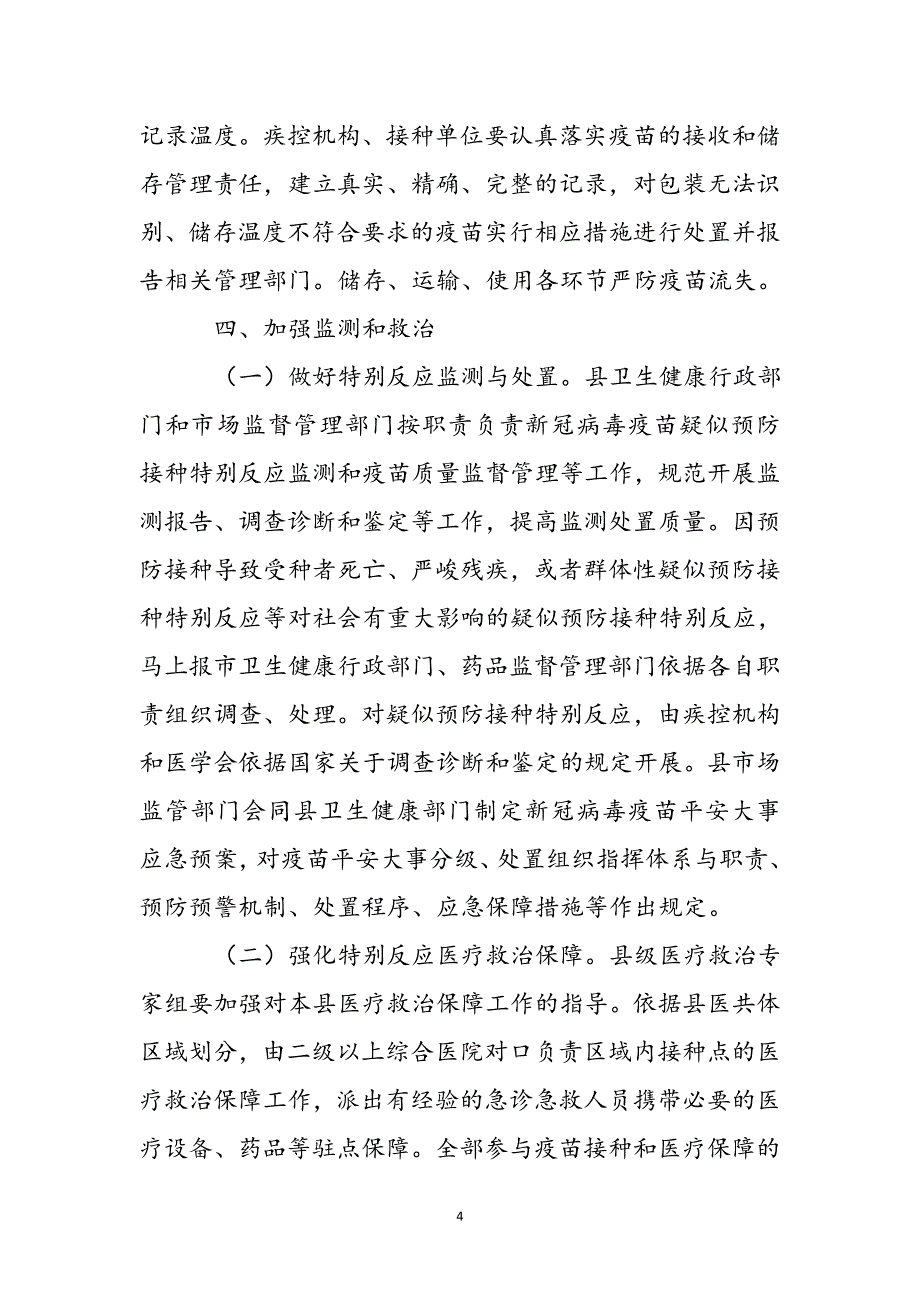 记录温度。疾控机构、接种单位要认真落实疫苗的接收和储
存管理责任，建立真实、精确、完整的记录，对包装无法识
别、储存温度不符合要求的疫苗实行相应措施进行处置并报
告相关管理部门。储存、运输、使用各环节严防疫苗流失。
四、加强监测和救治
（一）做好特别反应监测与处置。县卫生健康行政部
门和市场监督管理部门按职责负责新冠病毒疫苗疑似预防
接种特别反应监测和疫苗质量监督管理等工作，规范开展监
测报告、调查诊断和鉴定等工作，提高监测处置质量。因预
防接种导致受种者死亡、严峻残疾，或者群体性疑似预防接
种特别反应等对社会有重大影响的疑似预防接种特别反应，
马上报市卫生健康行政部门、药品监督管理部门依据各自职
责组织调查、处理。对疑似预防接种特别反应，由疾控机构
和医学会依据国家关于调查诊断和鉴定的规定开展。县市场
监管部门会同县卫生健康部门制定新冠病毒疫苗平安大事
应急预案，对疫苗平安大事分级、处置组织指挥体系与职责、
预防预警机制、处置程序、应急保障措施等作出规定。
（二）强化特别反应医疗救治保障。县级医疗救治专
家组要加强对本县医疗救治保障工作的指导。依据县医共体
区域划分，由二级以上综合医院对口负责区域内接种点的医
疗救治保障工作，派出有经验的急诊急救人员携带必要的医
疗设备、药品等驻点保障。全部参与疫苗接种和医疗保障的
4